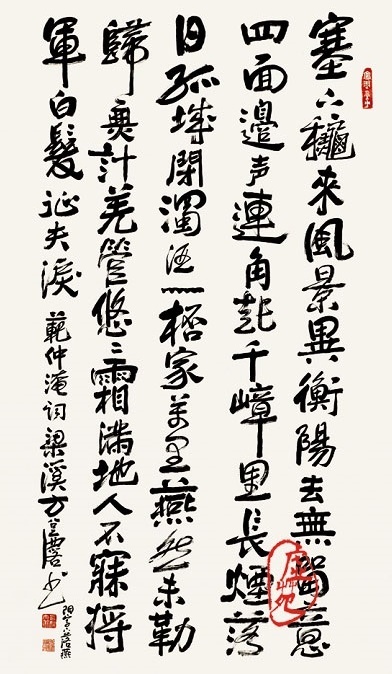 塞下龝來風景異衡陽去無留意
四面邊声連角起千嶂里長煙落
日孤城閉濁酒一桮家万里燕然未勒
歸無計羌管悠々霜滿地人不寐将
軍白髮征夫淚 範仲淹词 梁溪方召麐书
陽字下落燕